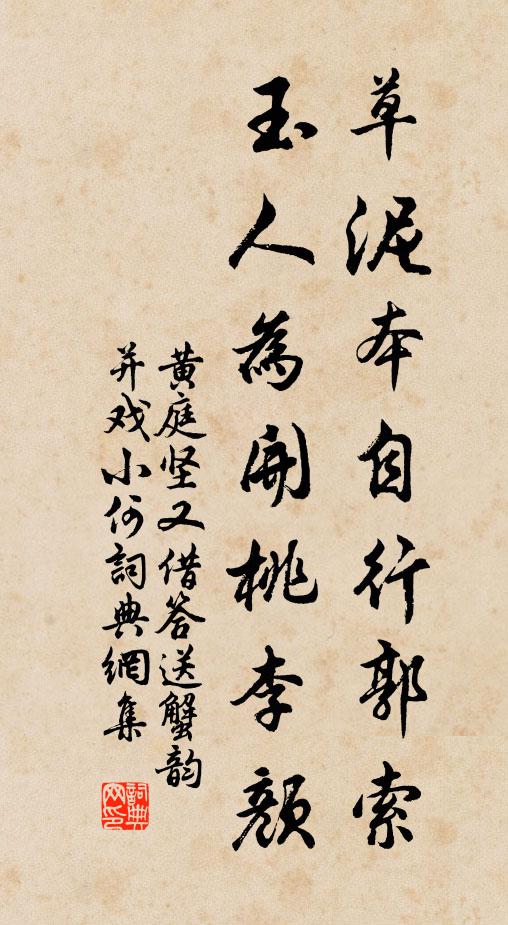 草泥本自行郭索
玉人為開桃李顏
黄庭坚又借答送蟹韵
并戏小何詞典網集
詞典网印